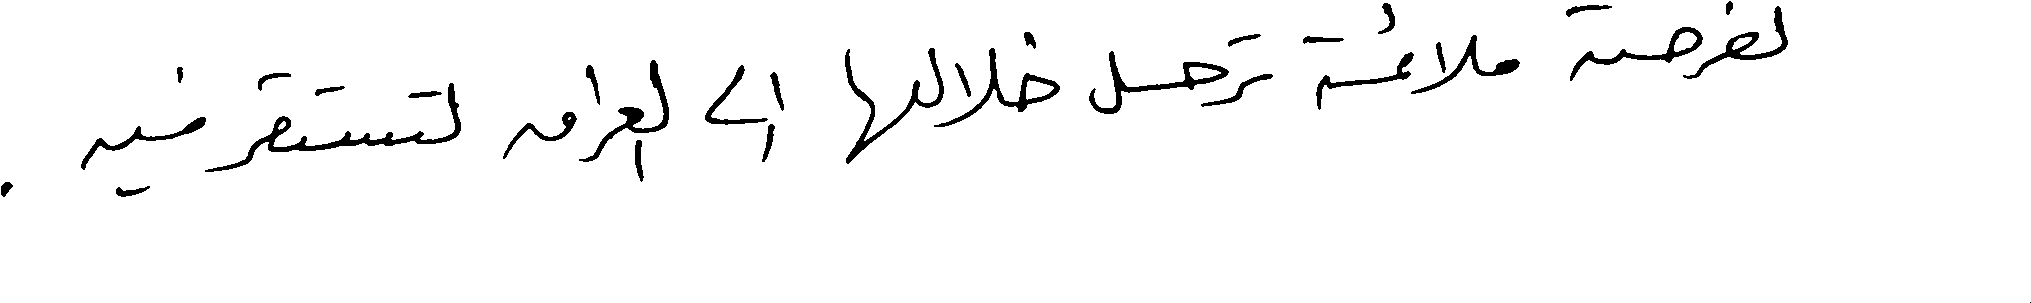 لفرصة ملائمة ترحل خلالها إلى العراق لتستقر فيه .